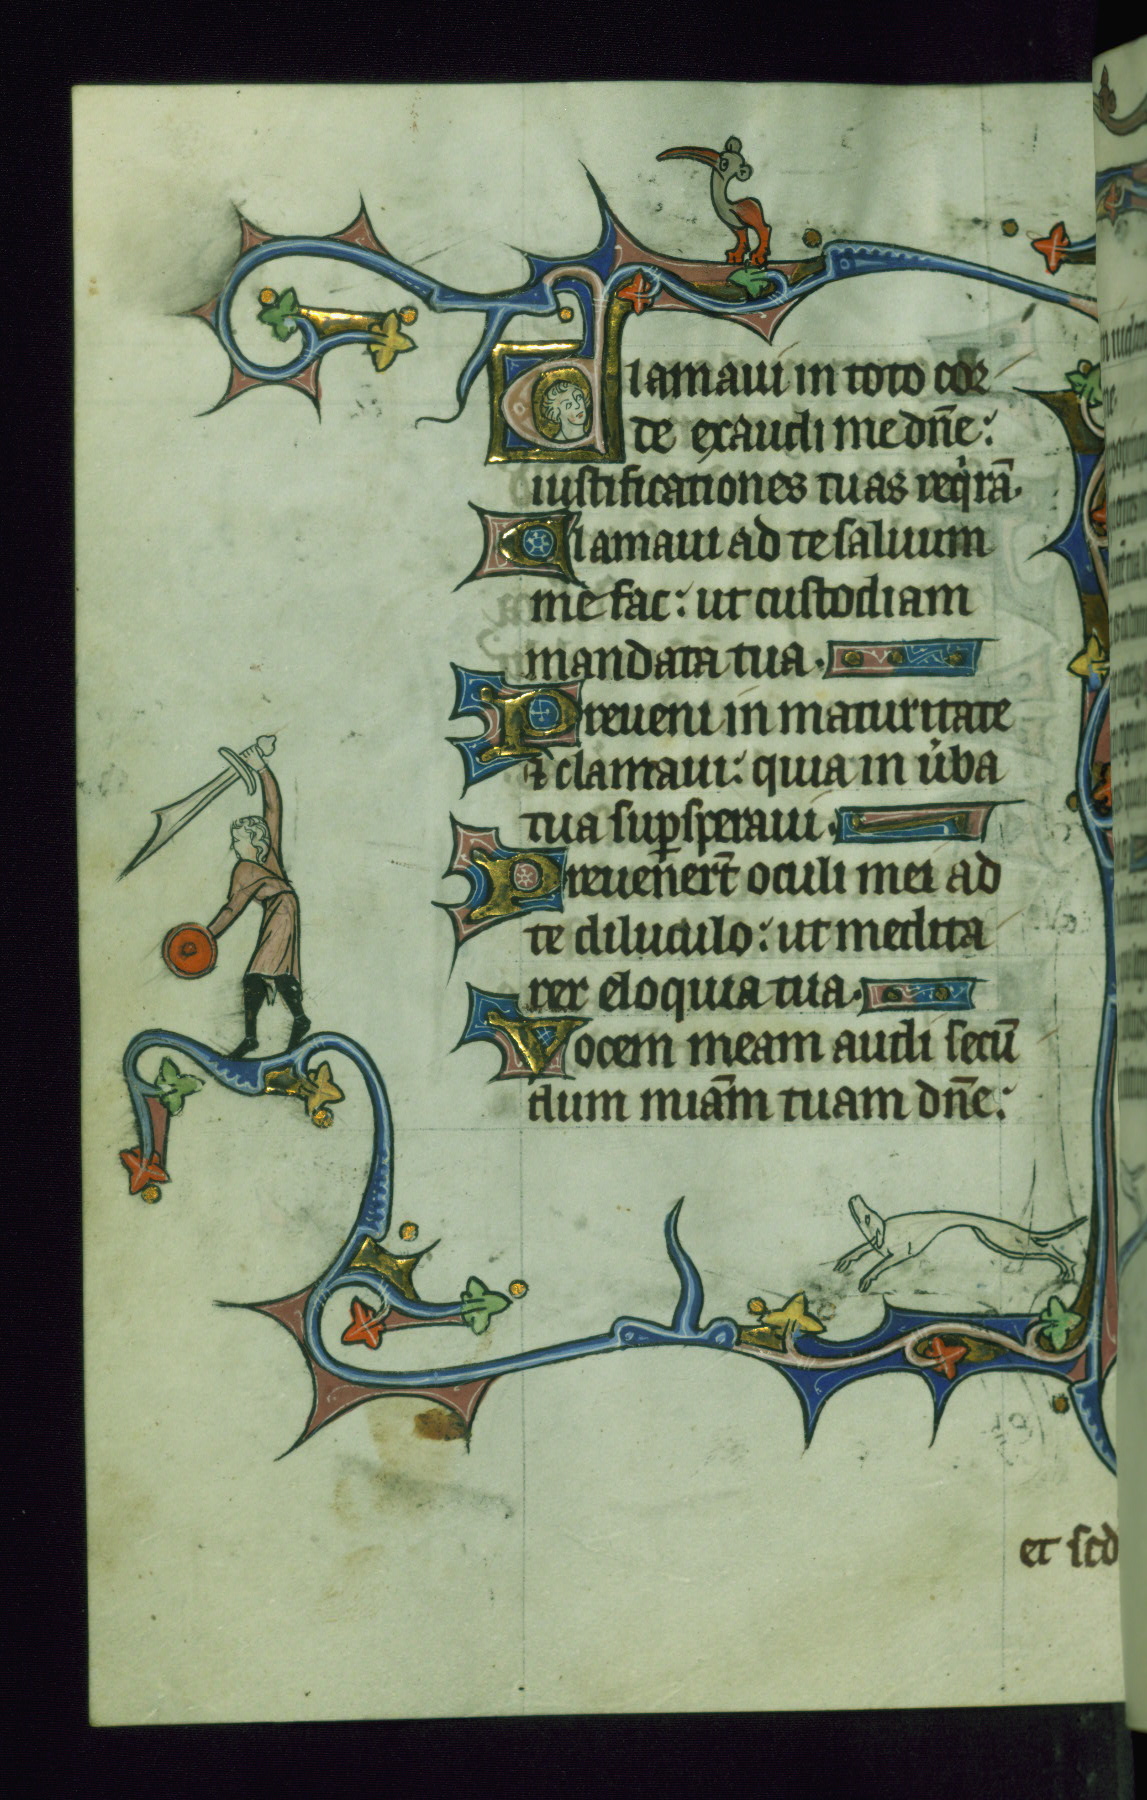 Clamaui in toto cor
de exaudi me dn̄e:
iustificationes tuas reqͥrā.
Clamaui ad te saluum
me fac: ut custodiam
mandata tua.
Preueni in maturitate
⁊ clamaui: quia in ůba
tua suꝑsperaui.
Preuener̄t oculi mei ad
te diluculo: ut medita
rer eloquia tua.
Vocem meam audi secū
dum miām tuam dn̄e:
et scd